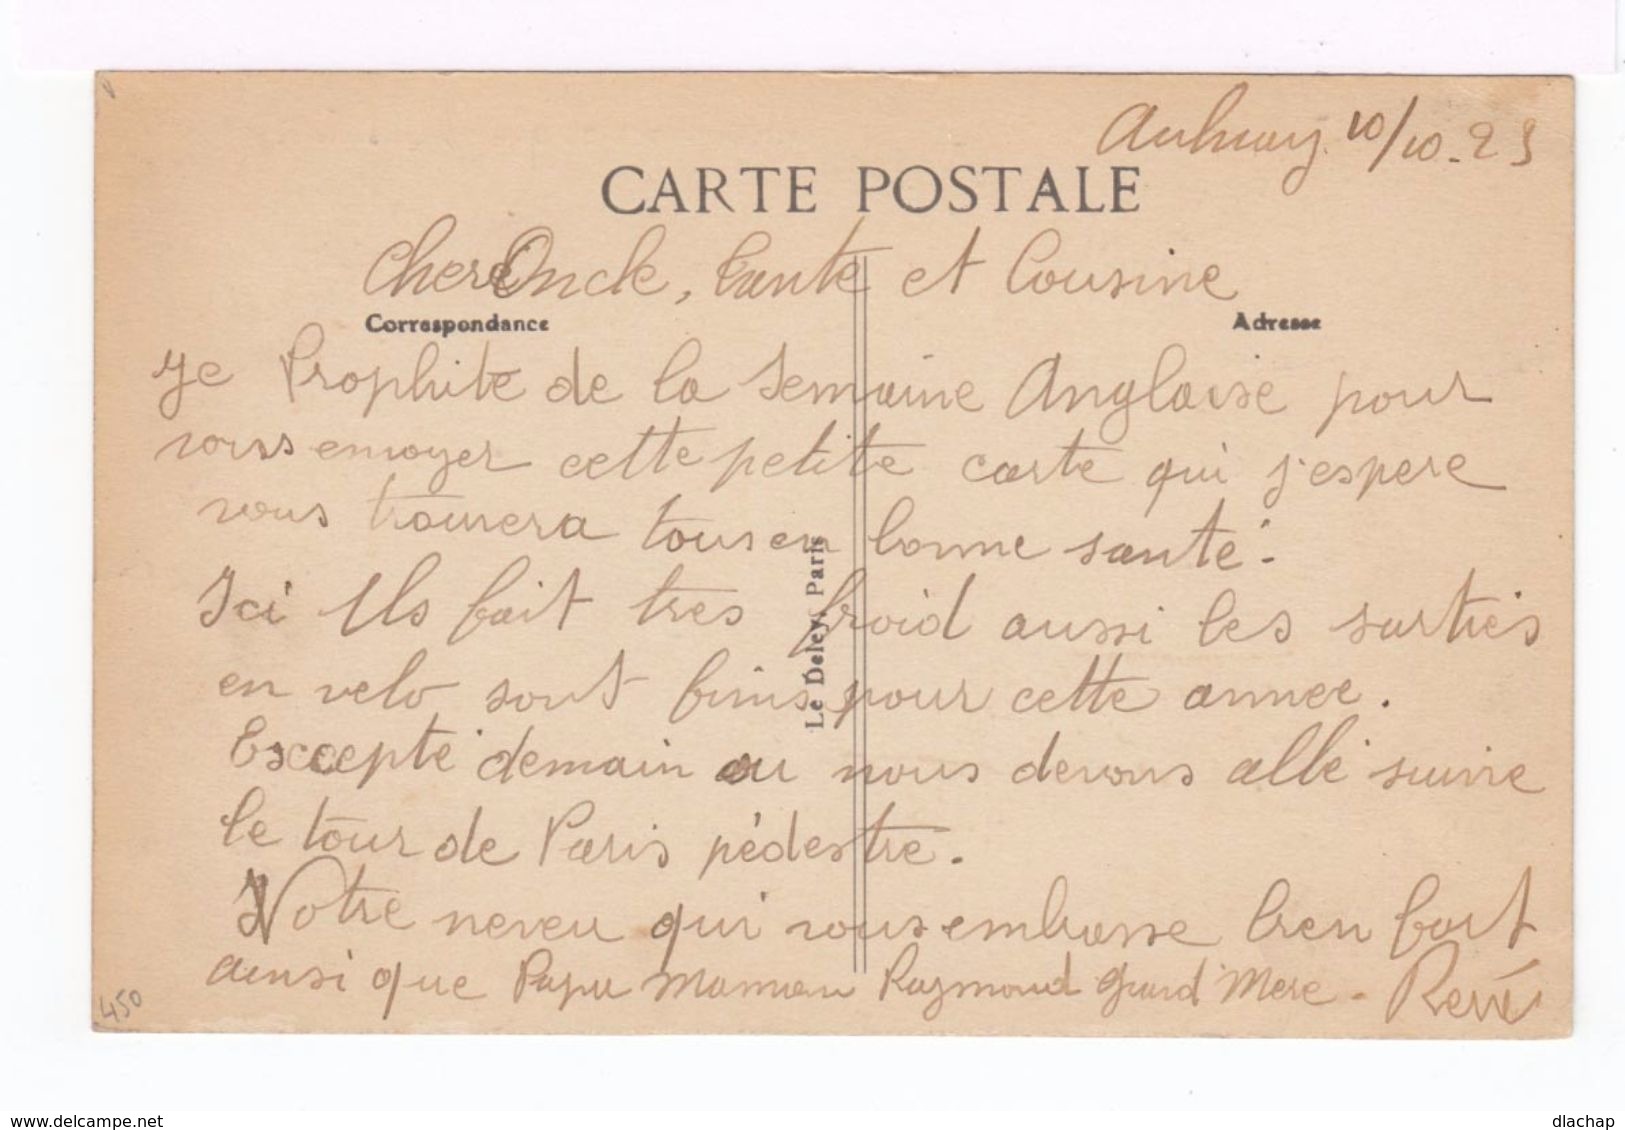 Aulnay 10/10-25
CARTE POSTALE
Chere Oncle, tante et Cousine
Correspondance
Adresse
Je Prophite de la Semaine Anglaise pour
vous envoyer cette petite carte qui j'espere
vous trouvera tous en bonne santé.
Ici Ils fait tres froid aussi les surties
en velo sont finis pour cette annee.
Excepté demain ou nous devons allé suivre
le tour de Paris pédestre.
Votre neveu qui vous embrasse bien fort
ainsi que Papa Maman Raymond Grand Mere - René
Le Deley, Paris
450
www.delcampe.net
dlachap